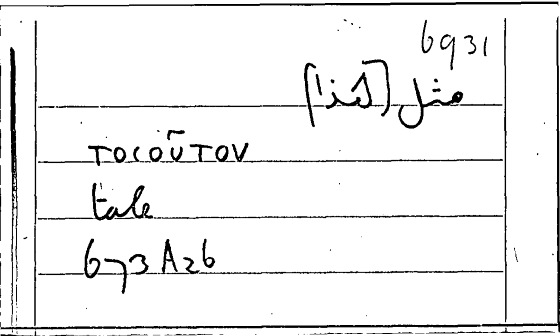 6931
مثل [كذا]
τοσοῦτον
tale
673 A26